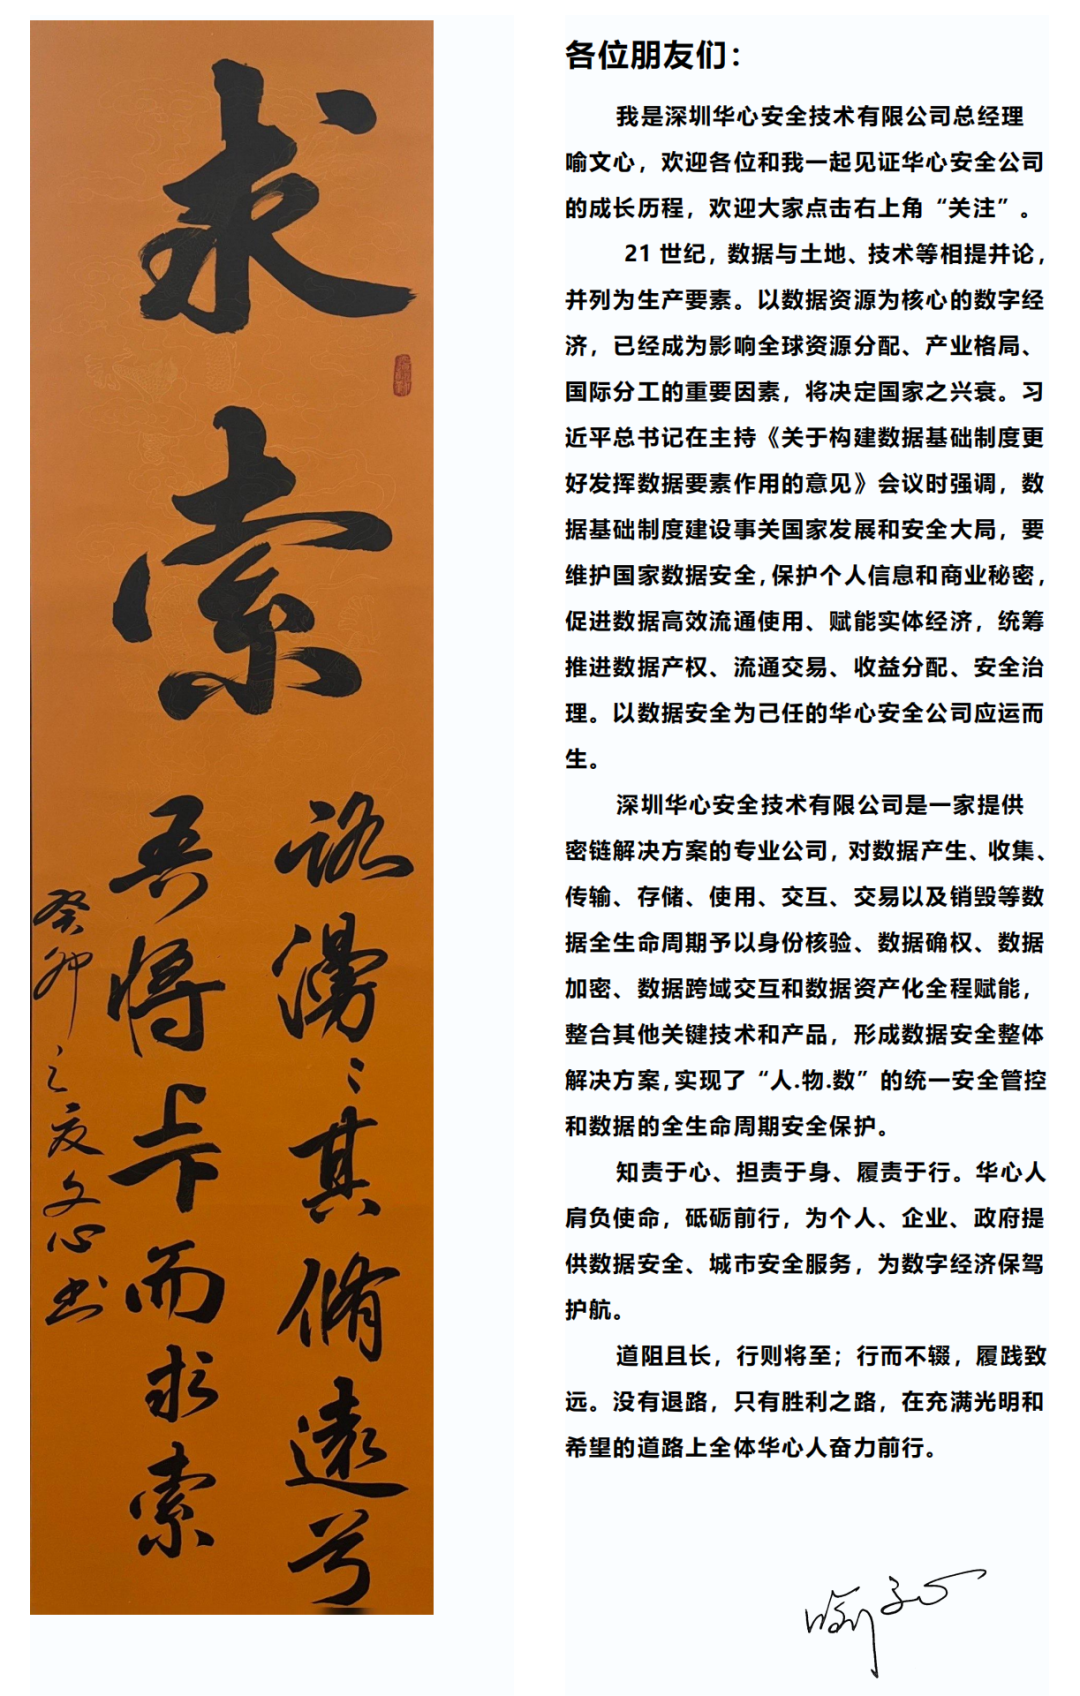 求索
路漫々其脩遠兮
吾將上下而求索
癸卯之夏文心书
各位朋友们：
我是深圳华心安全技术有限公司总经理
喻文心，欢迎各位和我一起见证华心安全公司
的成长历程，欢迎大家点击右上角“关注”。
21 世纪，数据与土地、技术等相提并论，
并列为生产要素。以数据资源为核心的数字经
济，已经成为影响全球资源分配、产业格局、
国际分工的重要因素，将决定国家之兴衰。习
近平总书记在主持《关于构建数据基础制度更
好发挥数据要素作用的意见》会议时强调，数
据基础制度建设事关国家发展和安全大局，要
维护国家数据安全，保护个人信息和商业秘密，
促进数据高效流通使用、赋能实体经济，统筹
推进数据产权、流通交易、收益分配、安全治
理。以数据安全为己任的华心安全公司应运而
生。
深圳华心安全技术有限公司是一家提供
密链解决方案的专业公司，对数据产生、收集、
传输、存储、使用、交互、交易以及销毁等数
据全生命周期予以身份核验、数据确权、数据
加密、数据跨域交互和数据资产化全程赋能，
整合其他关键技术和产品，形成数据安全整体
解决方案，实现了“人.物.数”的统一安全管控
和数据的全生命周期安全保护。
知责于心、担责于身、履责于行。华心人
肩负使命，砥砺前行，为个人、企业、政府提
供数据安全、城市安全服务，为数字经济保驾
护航。
道阻且长，行则将至；行而不辍，履践致
远。没有退路，只有胜利之路，在充满光明和
希望的道路上全体华心人奋力前行。
喻文心